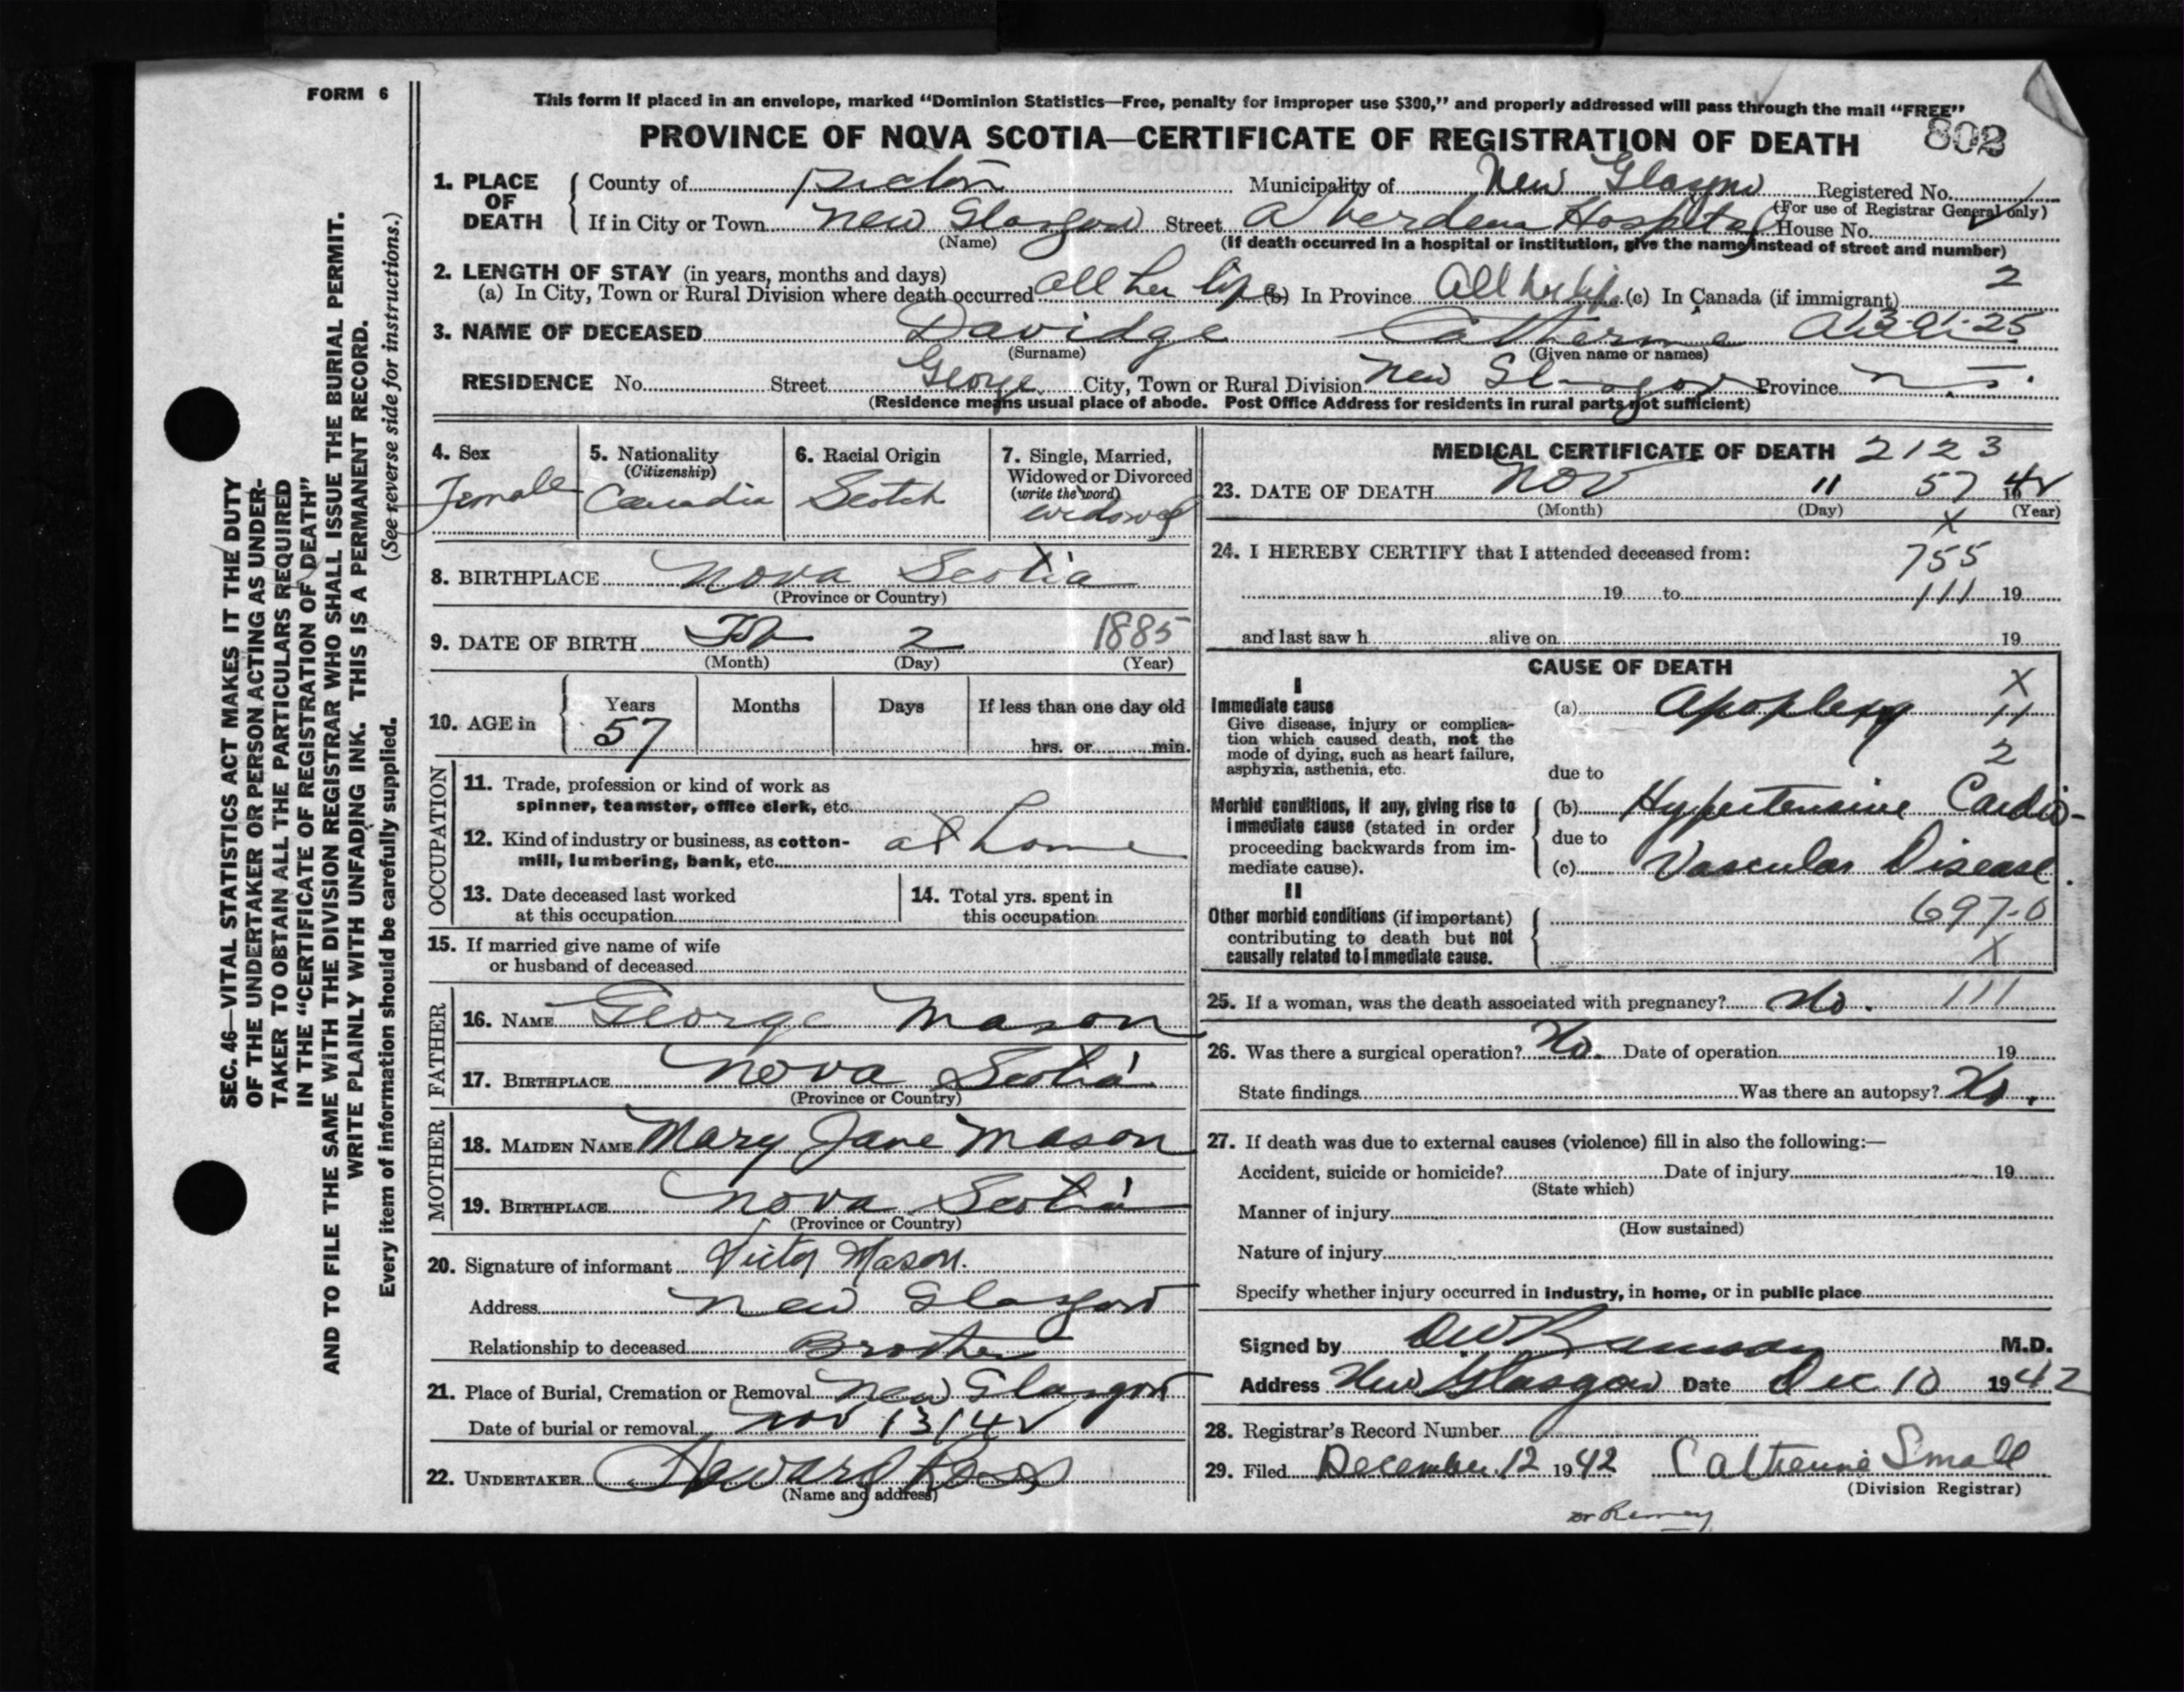 FORM 6
This form if placed in an envelope, marked “Dominion Statistics—Free, penalty for improper use $300,” and properly addressed will pass through the mail “FREE”
PROVINCE OF NOVA SCOTIA—CERTIFICATE OF REGISTRATION OF DEATH 802
1. PLACE OF DEATH
County of Pictou Municipality of New Glasgow Registered No.
(For use of Registrar General only)
If in City or Town New Glasgow Street Aberdeen Hospital House No.
(Name) (If death occurred in a hospital or institution, give the name instead of street and number)
2. LENGTH OF STAY (in years, months and days) 2
(a) In City, Town or Rural Division where death occurred all her life (b) In Province All her life (c) In Canada (if immigrant)
3. NAME OF DECEASED Davidge Catherine
(Surname) (Given name or names)
RESIDENCE No. Street George City, Town or Rural Division New Glasgow Province N.S.
(Residence means usual place of abode. Post Office Address for residents in rural parts not sufficient)
4. Sex
Female
5. Nationality
(Citizenship)
Canadia
6. Racial Origin
Scotch
7. Single, Married,
Widowed or Divorced
(write the word)
widowed
8. BIRTHPLACE Nova Scotia
(Province or Country)
9. DATE OF BIRTH Feb 2 1885
(Month) (Day) (Year)
10. AGE in
Years Months Days If less than one day old
57 hrs. or min.
OCCUPATION
11. Trade, profession or kind of work as
spinner, teamster, office clerk, etc.
12. Kind of industry or business, as cotton-
mill, lumbering, bank, etc. at home
13. Date deceased last worked
at this occupation
14. Total yrs. spent in
this occupation
15. If married give name of wife
or husband of deceased
FATHER
16. NAME George Mason
17. BIRTHPLACE Nova Scotia
(Province or Country)
MOTHER
18. MAIDEN NAME Mary Jane Mason
19. BIRTHPLACE Nova Scotia
(Province or Country)
20. Signature of informant Victor Mason.
Address New Glasgow
Relationship to deceased Brother
21. Place of Burial, Cremation or Removal New Glasgow
Date of burial or removal Nov 13/42
22. UNDERTAKER Howard Ross
(Name and address)
MEDICAL CERTIFICATE OF DEATH 2123
23. DATE OF DEATH Nov 11 57 1942
(Month) (Day) (Year)
X
24. I HEREBY CERTIFY that I attended deceased from: 755
19 to 111 19
and last saw h alive on 19
CAUSE OF DEATH
I X
Immediate cause (a) Apoplexy 11
Give disease, injury or complica-
tion which caused death, not the
mode of dying, such as heart failure,
asphyxia, asthenia, etc.
2
due to
Morbid conditions, if any, giving rise to
immediate cause (stated in order
proceeding backwards from im-
mediate cause).
(b) Hypertensive Cardio-
due to
(c) Vascular Disease.
II
Other morbid conditions (if important)
contributing to death but not
causally related to immediate cause.
697-0
X
25. If a woman, was the death associated with pregnancy? No. 111
26. Was there a surgical operation? No. Date of operation 19
State findings Was there an autopsy? No.
27. If death was due to external causes (violence) fill in also the following:—
Accident, suicide or homicide? Date of injury 19
(State which)
Manner of injury
(How sustained)
Nature of injury
Specify whether injury occurred in industry, in home, or in public place
Signed by M.D.
Address New Glasgow Date Dec 10 1942
28. Registrar's Record Number
29. Filed December 12 1942 Catherine Small
(Division Registrar)
SEC. 46—VITAL STATISTICS ACT MAKES IT THE DUTY
OF THE UNDERTAKER OR PERSON ACTING AS UNDER-
TAKER TO OBTAIN ALL THE PARTICULARS REQUIRED
IN THE “CERTIFICATE OF REGISTRATION OF DEATH”
AND TO FILE THE SAME WITH THE DIVISION REGISTRAR WHO SHALL ISSUE THE BURIAL PERMIT.
WRITE PLAINLY WITH UNFADING INK. THIS IS A PERMANENT RECORD.
Every item of information should be carefully supplied. (See reverse side for instructions.)